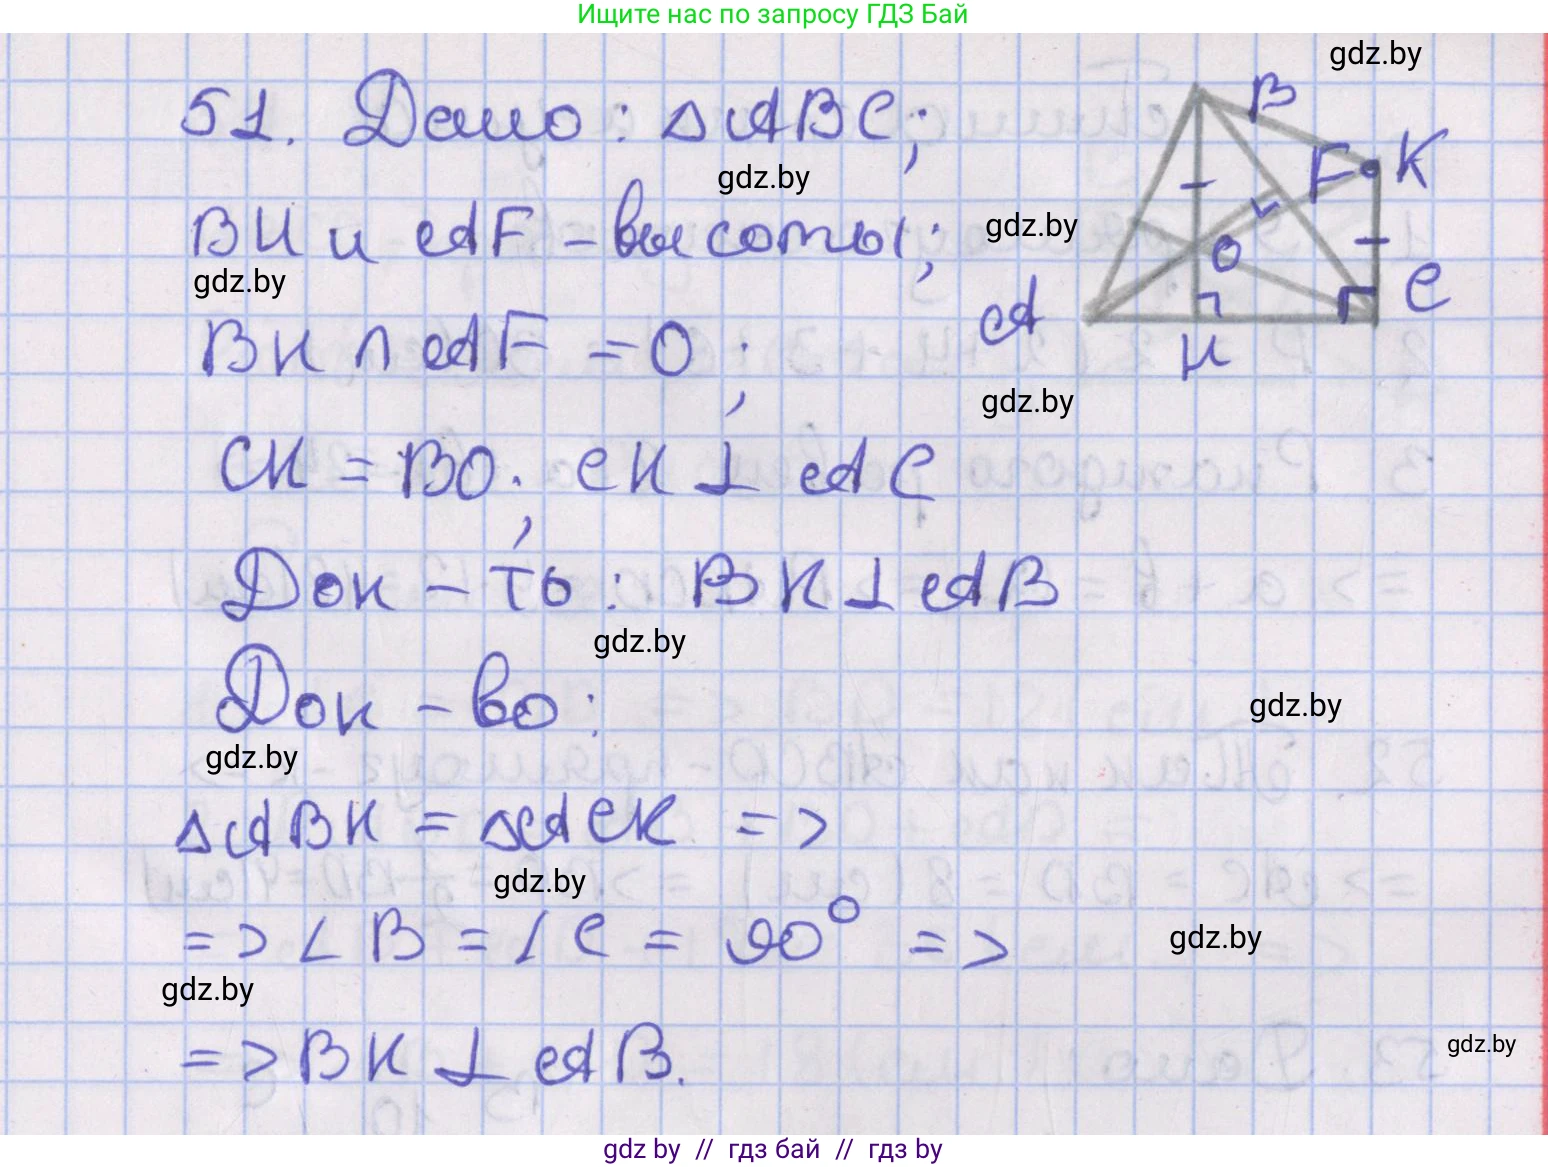 Ищите нас по запросу ГДЗ Бай
gdz.by
51. Дано: △ABC;
B
K
F
gdz.by
BH и AF – высоты;
gdz.by
O
gdz.by
C
A
BH ∩ AF = O;
H
gdz.by
CK = BO; CK ⊥ AC
Док – ть: BK ⊥ AB
gdz.by
Док – во:
gdz.by
gdz.by
△ABK = △ACK =>
gdz.by
=> ∠B = ∠C = 90° =>
gdz.by
gdz.by
=> BK ⊥ AB.
gdz.by
gdz by // гдз бай // гдз by